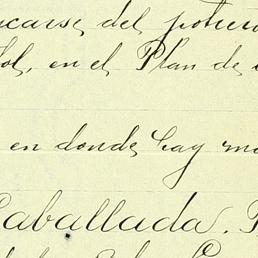 carse del potrero
Sol, en el Plan de
en donde hay
Caballada.